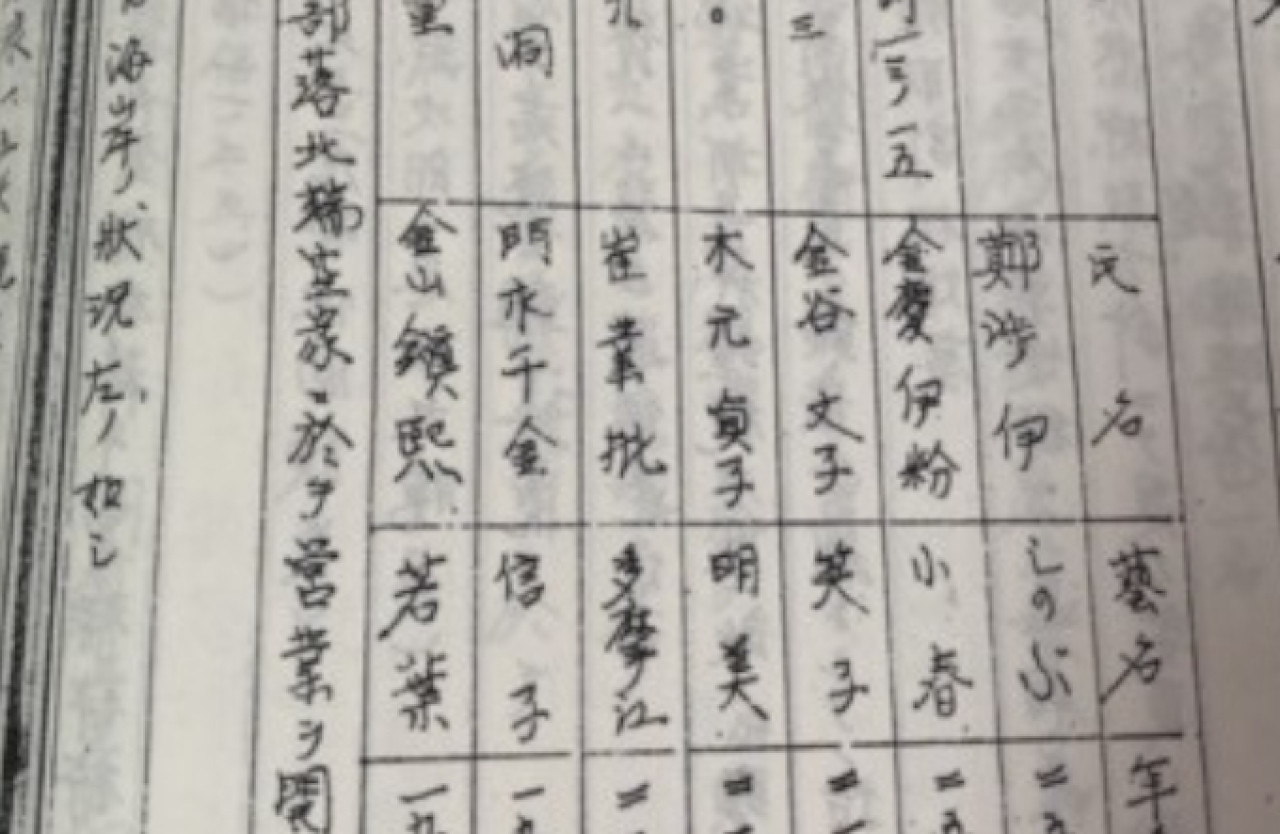 氏名 藝名 年
鄭 伊 しのぶ 二五
一三ノ一五 金慶伊粉 小春 二五
三 金谷文子 笑子 二
木元貞子 明美 二
九 崔業 多摩江 二
洞 門永千金 信子 一九
里 金山鎮熙 若葉 一九
部落北端空家ニ於テ営業ヲ開
海岸ノ状況左ノ如シ